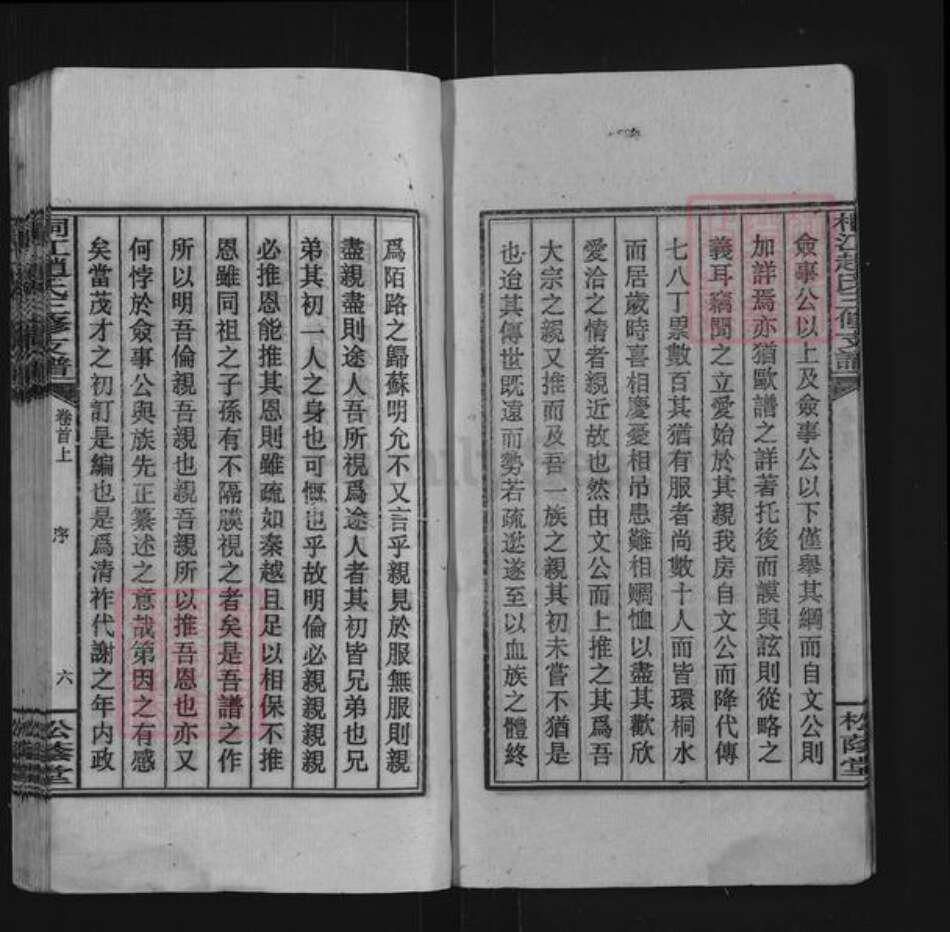 僉事公以上及僉事公以下僅舉其綱而自文公則
加詳焉亦猶歐譜之詳著托後而謨與詃則從略之
義耳竊聞之立愛始於其親我房自文公而降代傳
七八丁票數百其猶有服者尚數十人而皆環桐水
而居歲時喜相慶憂相吊患難相賙恤以盡其歡欣
愛洽之情者親近故也然由文公而上推之其爲吾
大宗之親又推而及吾一族之親其初未嘗不猶是
也迨其傳世既遠而勢若疏逖遂至以血族之體終
松蔭堂
爲陌路之歸蘇明允不又言乎親見於服無服則親
盡親盡則途人吾所視爲途人者其初皆兄弟也兄
弟其初一人之身也可慨也乎故明倫必親親親親
必推恩能推其恩則雖疏如秦越且足以相保不推
恩雖同祖之子孫有不隔膜視之者矣是吾譜之作
所以明吾倫親吾親也親吾親所以推吾恩也亦又
何悖於僉事公與族先正纂述之意哉第因之有感
矣當茂才之初訂是編也是爲清祚代謝之年内政
桐江趙氏三修支譜
卷首上
序
六